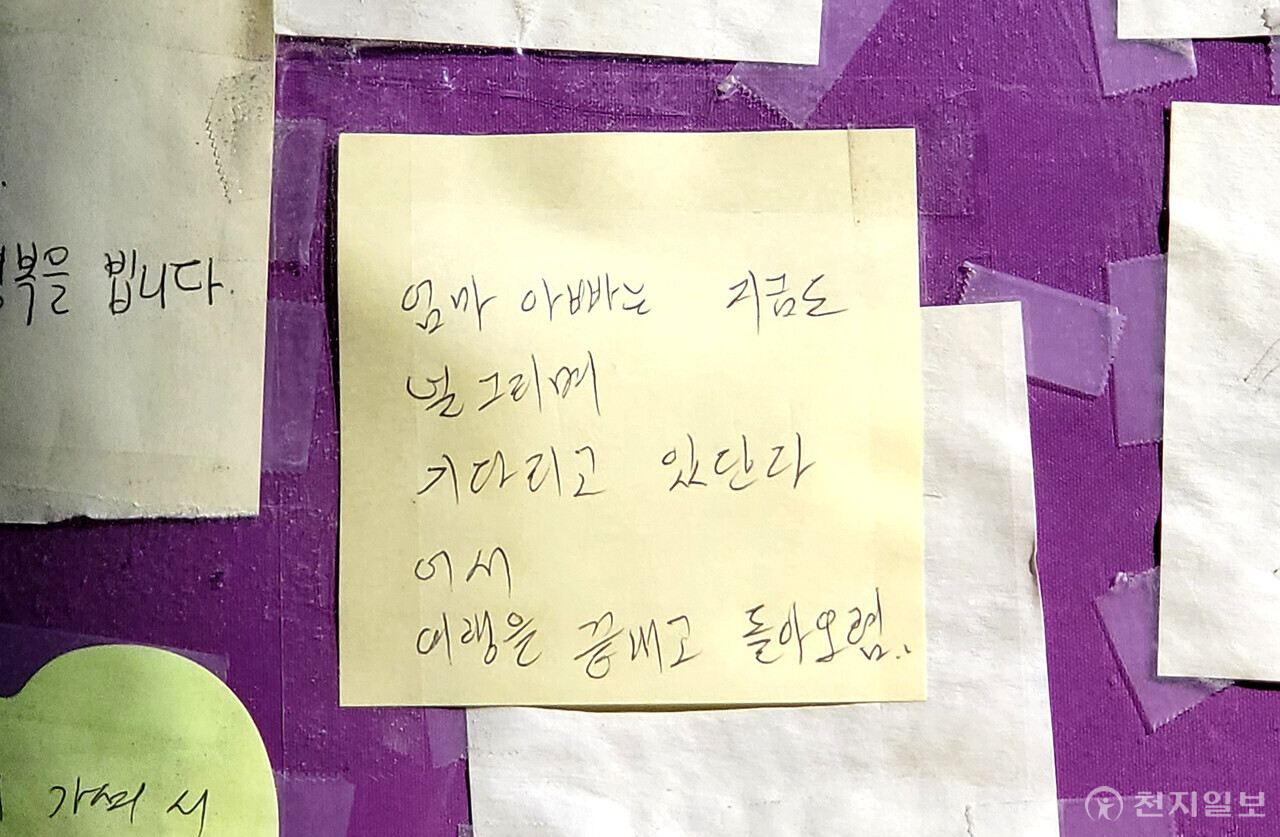 복을 빕니다.
엄마 아빠는 지금도
널 그리며
기다리고 있단다
어서
여행을 끝내고 돌아오렴..
천지일보